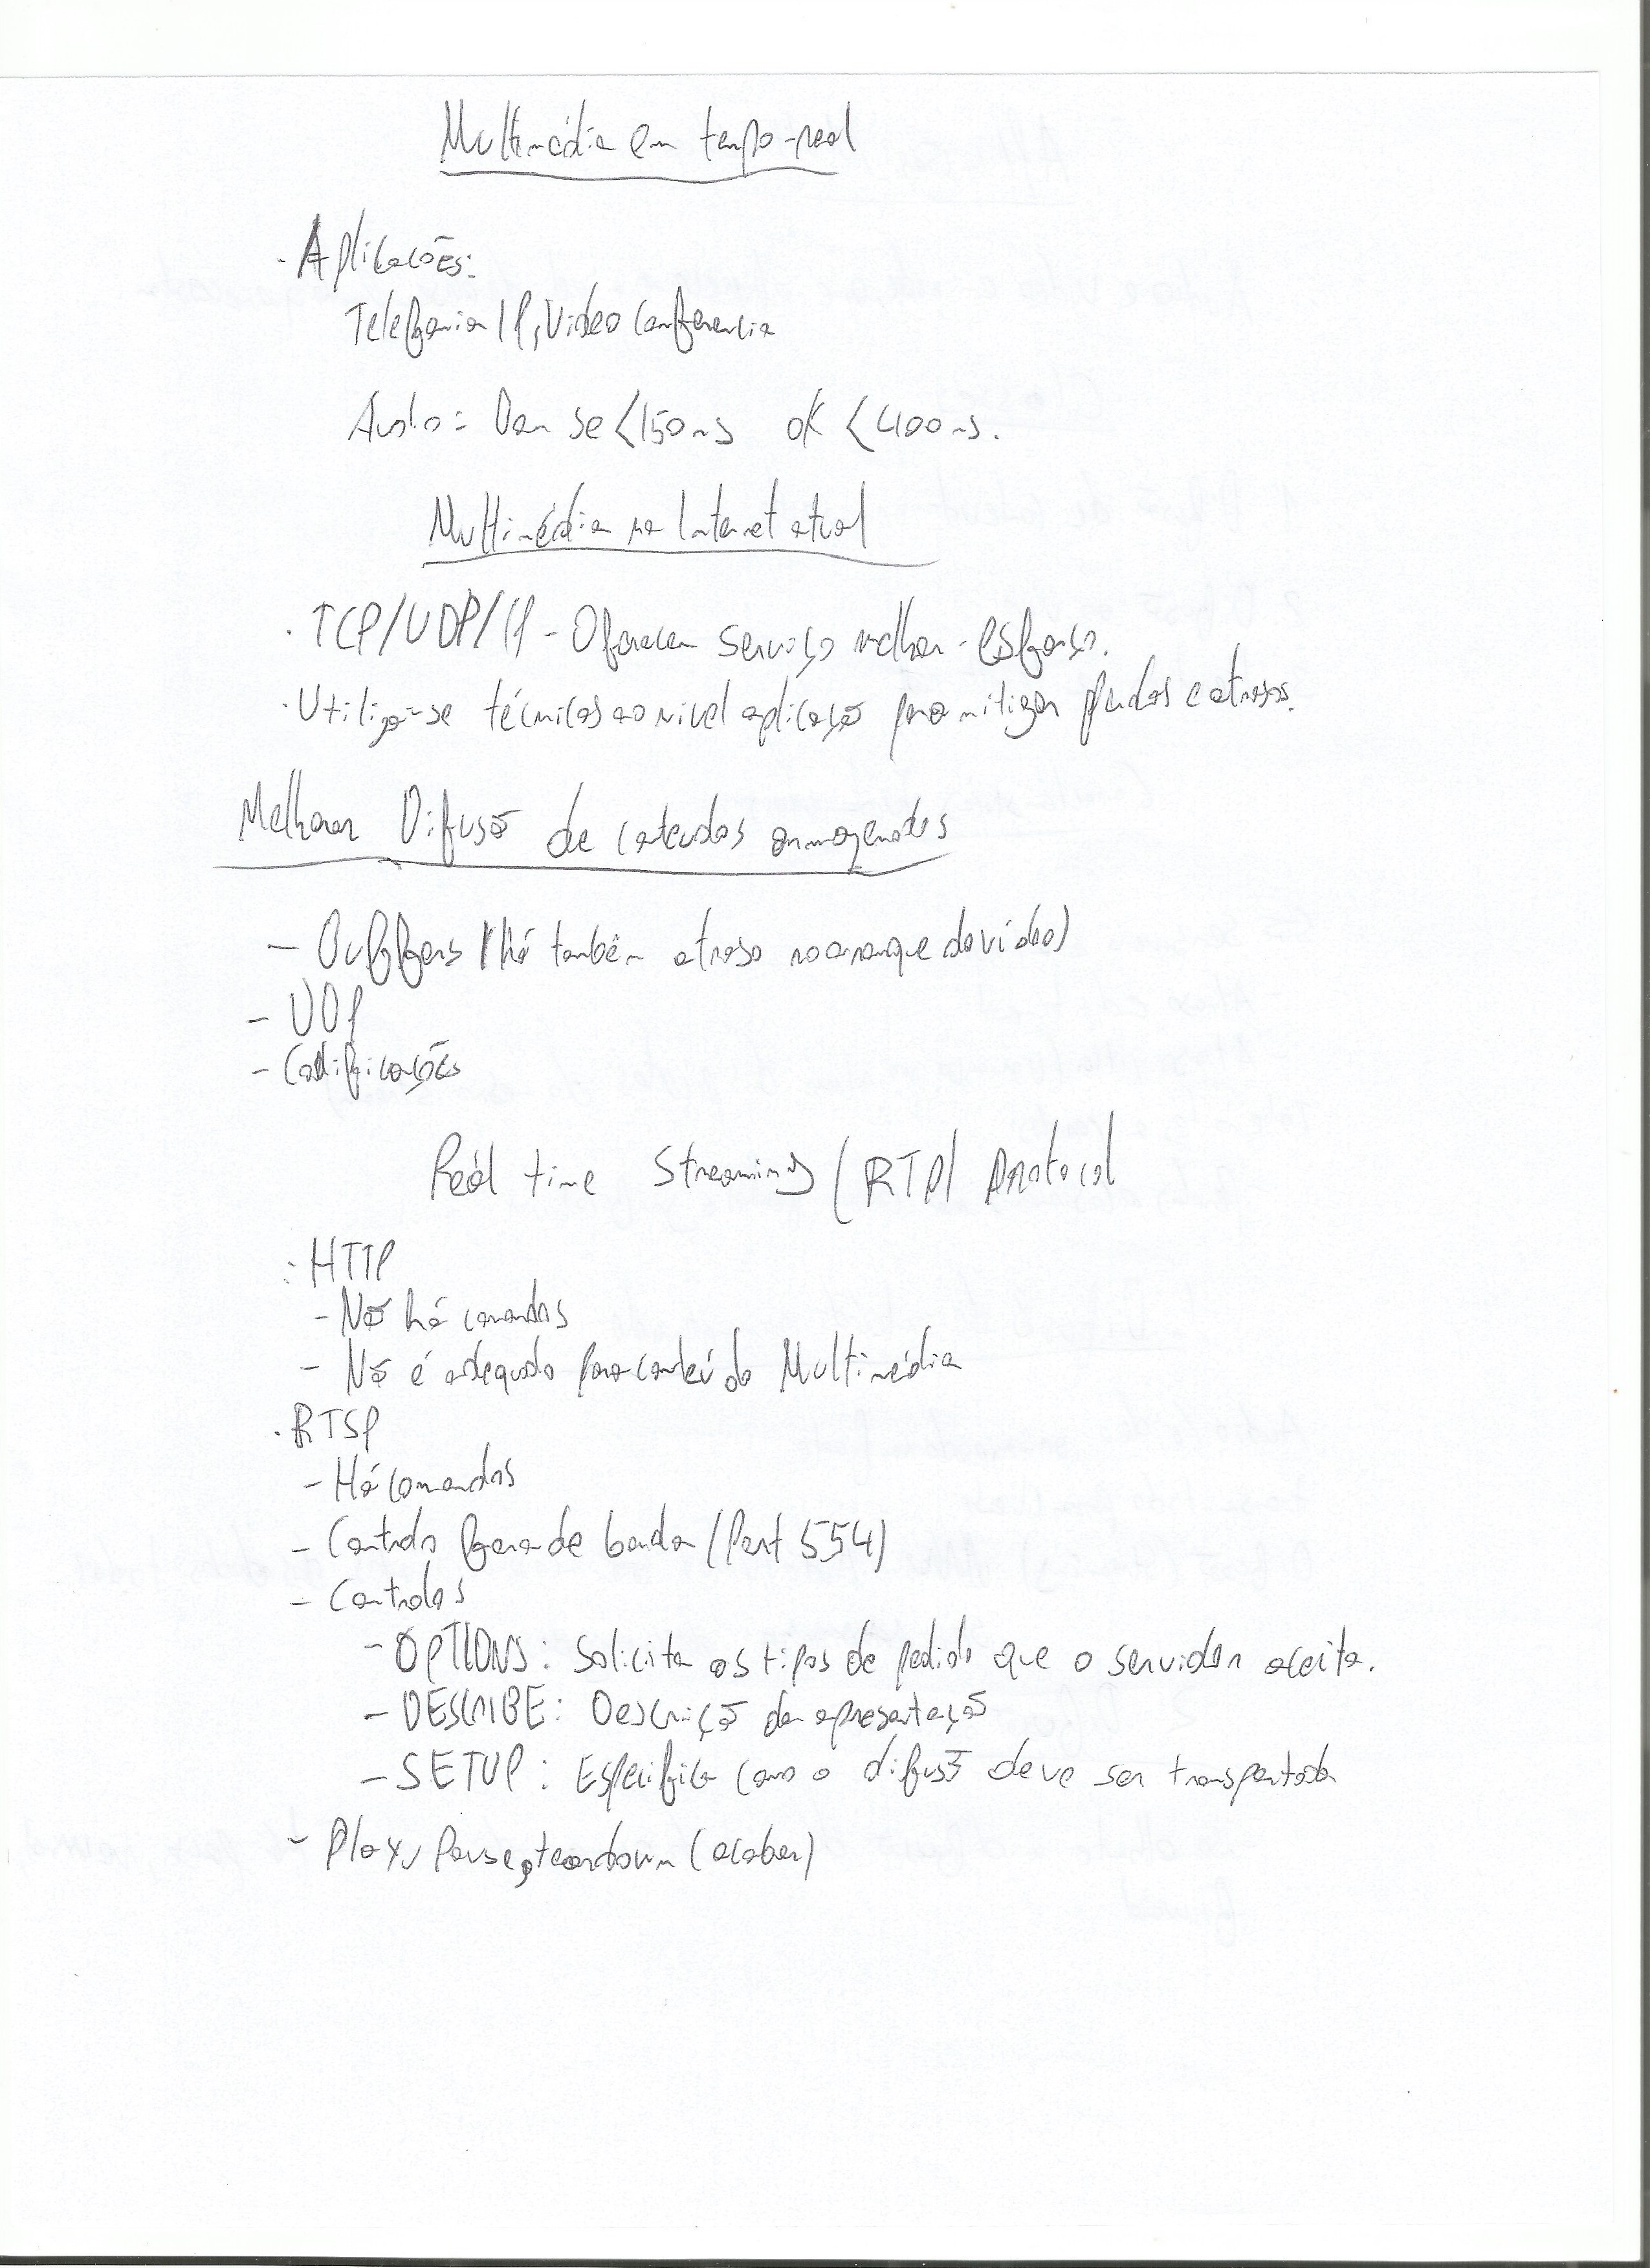 Multimédia em tempo-real
· Aplicações:
Telefonia IP, Video Conferencia
Audio: Bom se <150ms OK <400ms.
Multimédia na Internet atual
· TCP/UDP/IP - Oferecem serviço melhor-esforço.
· Utiliza-se técnicas ao nivel aplicação para mitigar perdas e atrasos.
Melhorar Difusão de conteudos armazenados
- Buffers (há também atraso no arranque do vídeo)
- UDP
- Codificações
Real time Streaming (RTP) Protocol
· HTTP
- Não há comandos
- Não é adequado para conteúdo Multimédia
· RTSP
- Há comandos
- Controlo fora de banda (Port 554)
- Controlos
- OPTIONS: Solicita os tipos de pedido que o servidor aceita.
- DESCRIBE: Descrição da apresentação
- SETUP: Especifica como a difusão deve ser transportada
- Play, Pause, teardown (acabar)